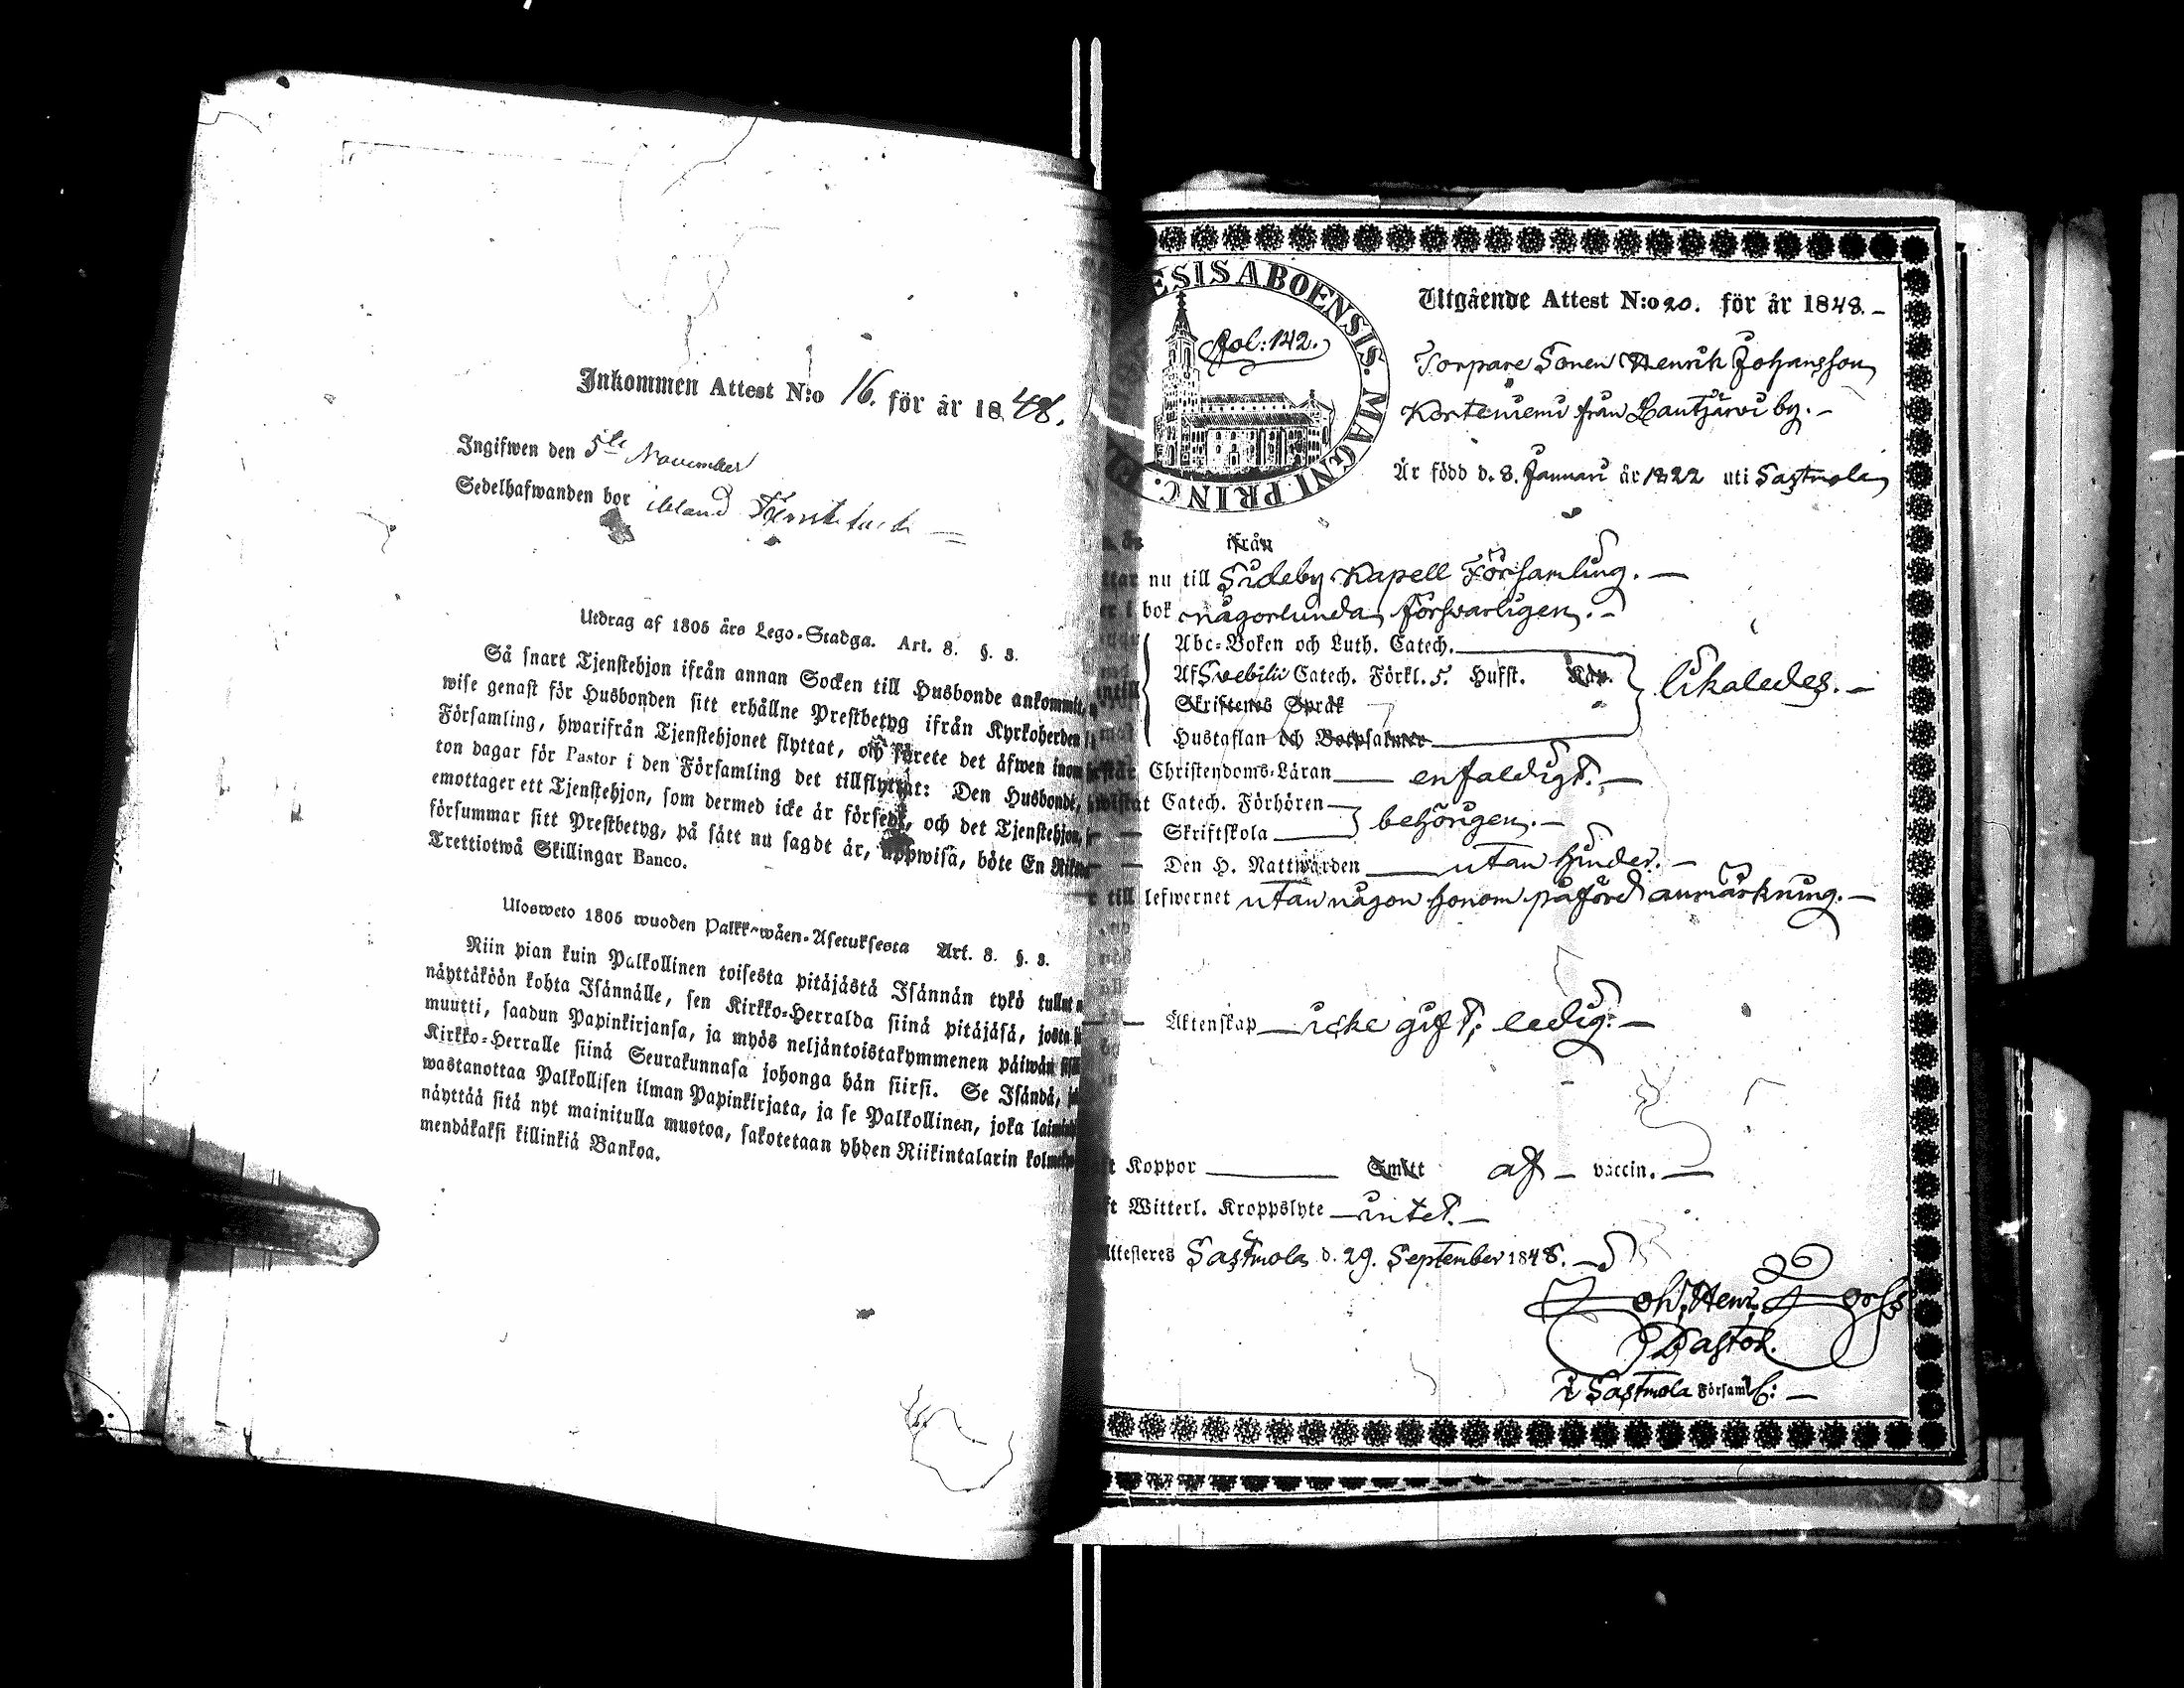 Inkommen Attest N:o 16. för år 1848.
Ingifwen den 5te November
Sedelhafwanden bor ibland
Utdrag af 1805 års Lego-Stadga. Art. 8. §. 3.
Så snart Tjenstehjon ifrån annan Socken till Husbonde ankommit,
wise genast för Husbonden sitt erhållne Prestbetyg ifrån Kyrkoherden
Församling, hwarifrån Tjenstehjonet flyttat, och förete det äfwen inom
ton dagar för Pastor i den Församling det tillflyttat: Den Husbonde,
emottager ett Tjenstehjon, som dermed icke är försedt, och det Tjenstehjon,
försummar sitt Prestbetyg, på sätt nu sagdt är, uppwisa, böte En Riks
Trettiotwå Skillingar Banco.
Ulosweto 1805 wuoden Palkkawäen-Asetuksesta Art. 8. §. 3.
Niin pian kuin Palkollinen toisesta pitäjästä Isännän tykö tullut
näyttäköön kohta Isännälle, sen Kirkko-Herralda siinä pitäjäsä, josta
muutti, saadun Papinkirjansa, ja myös neljäntoistakymmenen päiwän
Kirkko-Herralle siinä Seurakunnasa johonga hän siirsi. Se Isändä,
wastanottaa Palkollisen ilman Papinkirjata, ja se Palkollinen, joka
näyttää sitä nyt mainitulla muotoa, sakotetaan yhden Riikintalarin
mendäkaksi killinkiä Bankoa.
ESIS ABOENSIS. MAGNI PRINC.
Fol: 142.
Utgående Attest N:o 20. för år 1848. -
Torpare Sonen Henrik Johansson
Korteniemi från Lautjärvi by. -
Är född d. 8. Januari år 1822 uti Sastmola
ifrån
nu till Sideby Kapell Församling. -
bok någorlunda försvarligen. -
Abc-Boken och Luth. Catech.
Af Svebilii Catech. Förkl. 5. Hufst. Kap. likaledes. -
Skriftenes Språk
Hustaflan och Botpsalmer
Christendoms-Läran enfaldigt. -
Catech. Förhören
Skriftskola behörigen. -
Den H. Nattwarden utan hinder. -
till lefwernet utan någon honom påförd anmärkning. -
Äktenskap icke gift; ledig: -
Koppor Smitt af - vaccin. -
Witterl. Kroppslyte intet. -
Attesteres Sastmola d. 29. September 1848. -
Joh. Henr.
Pastor.
i Sastmola Församl: -